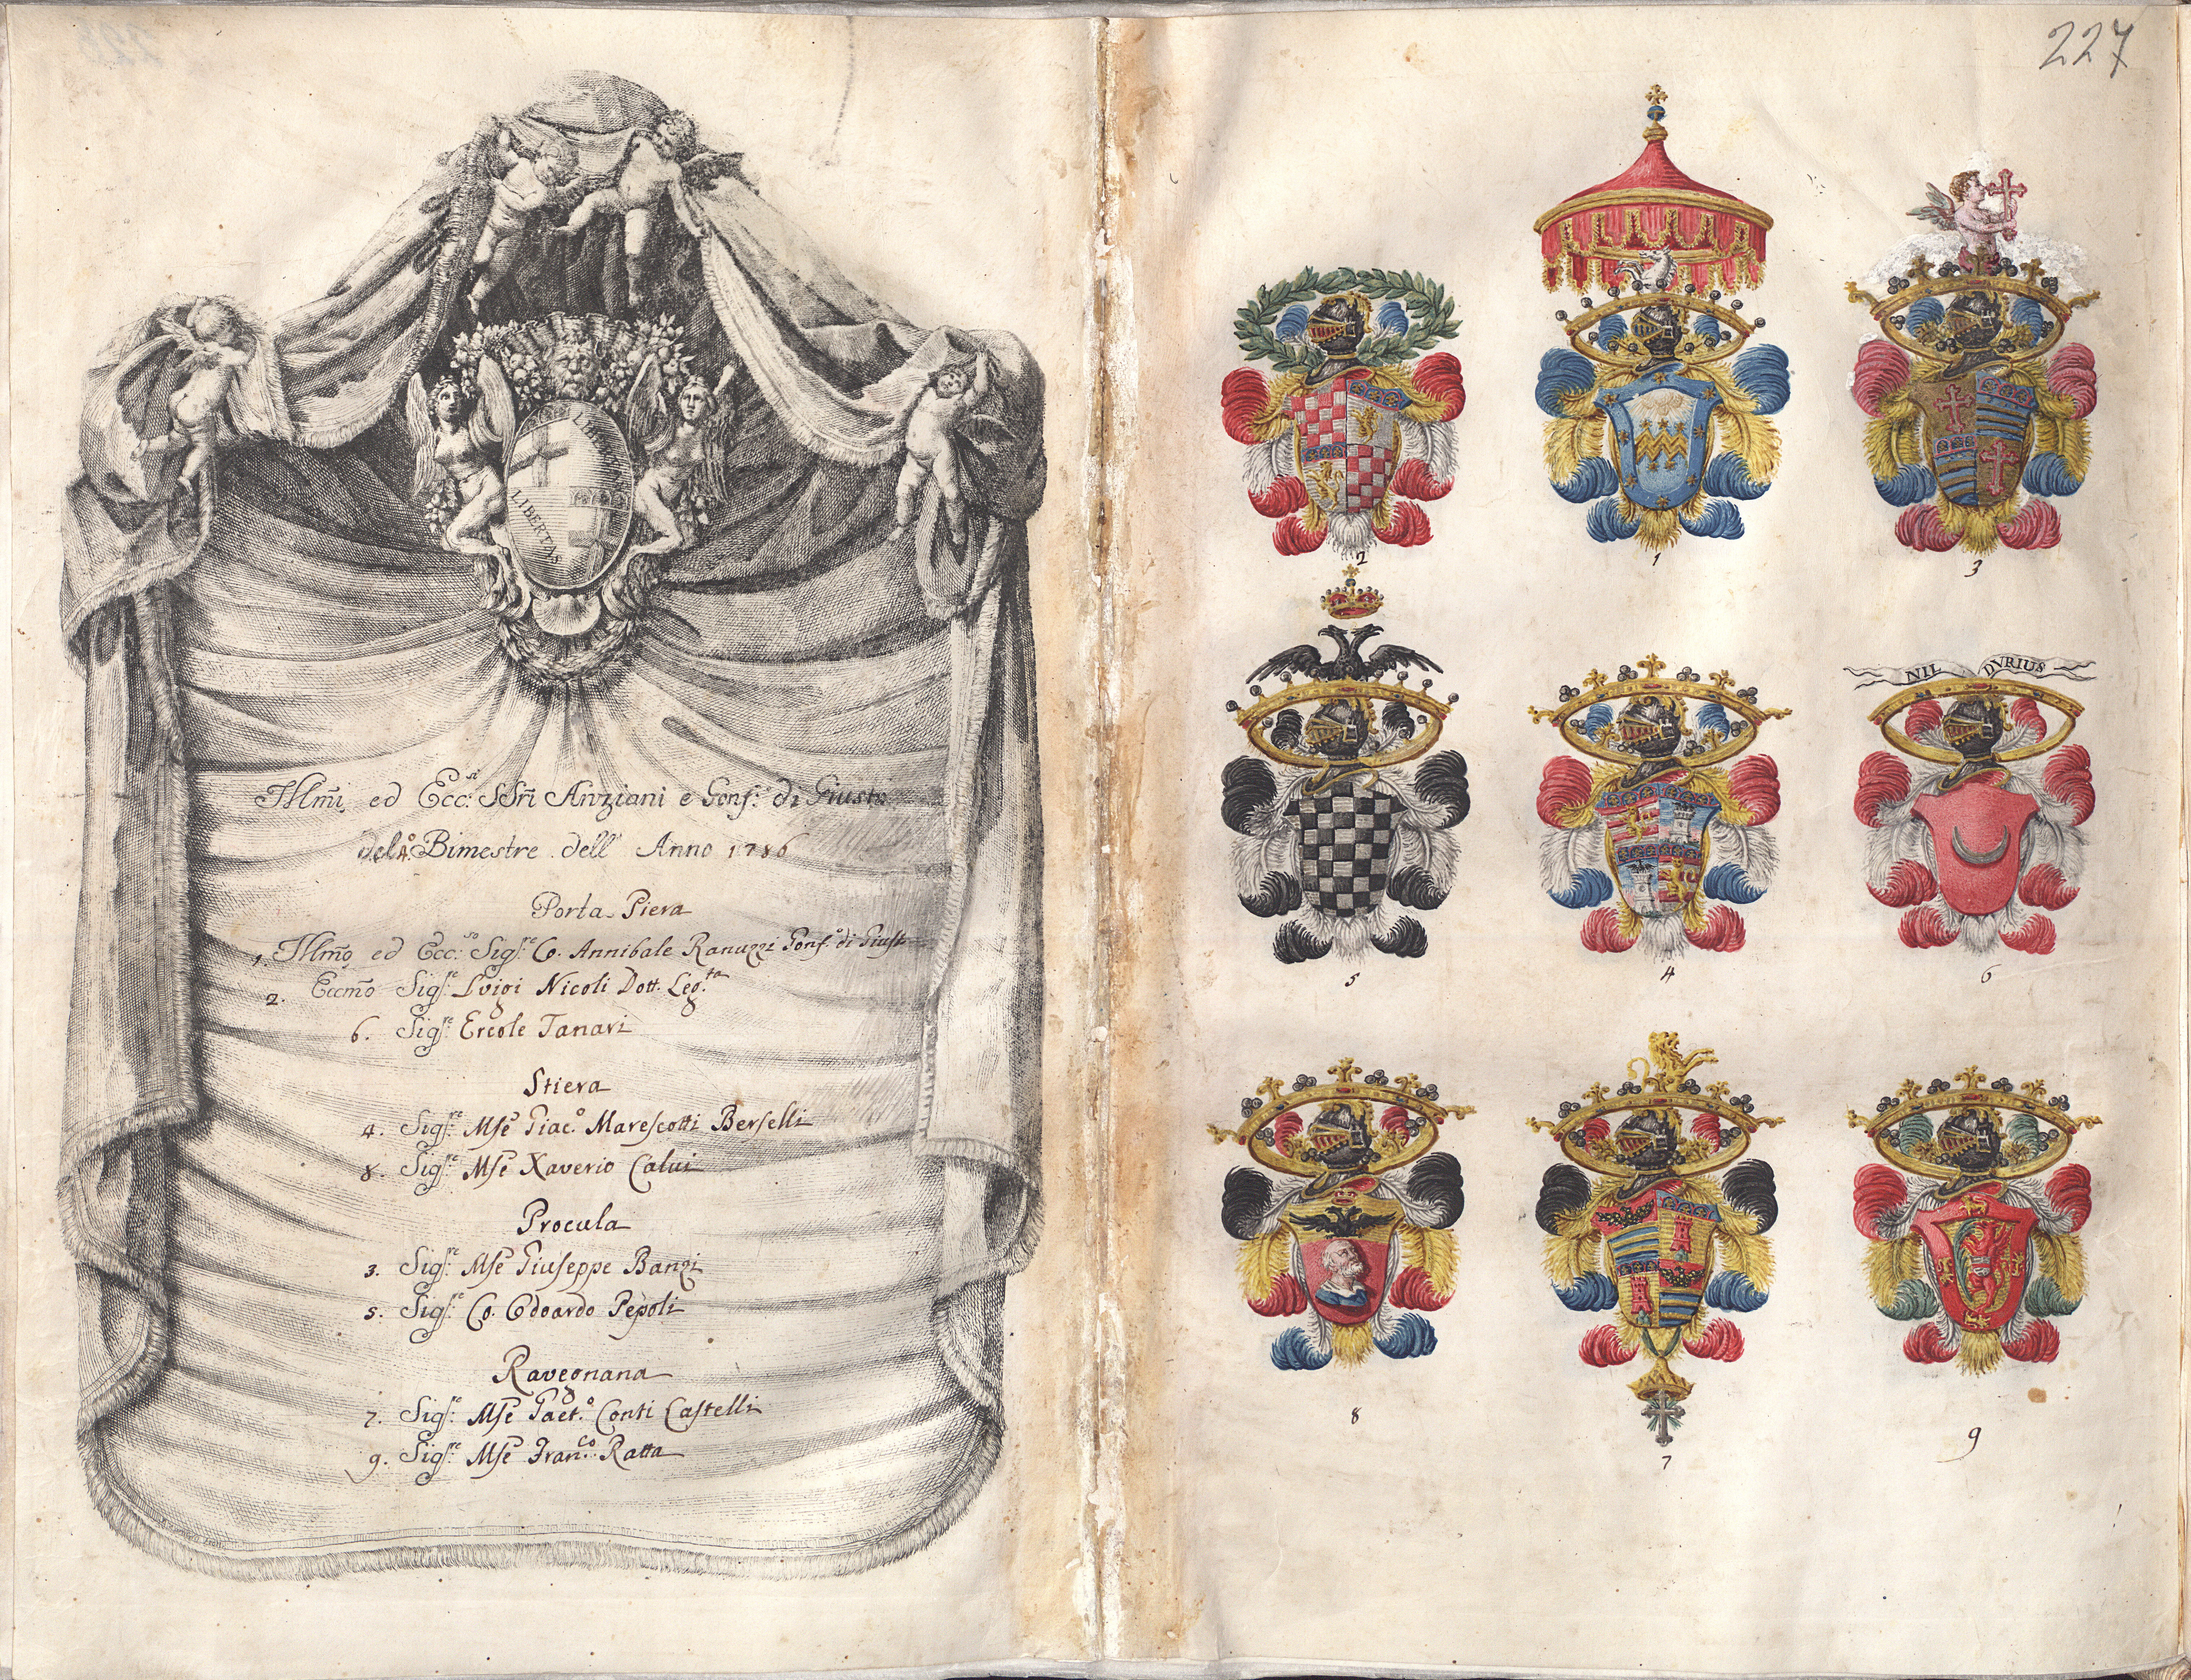 LIBERTAS
LIBERTAS
Illm̃i ed Ecc:si SSri Anziani e Gonf: di Giusta
del 4.o Bimestre dell' Anno 1786
Porta Piera
1. Illmõ ed Ecc:so Sig:re Co. Annibale Ranuzzi Gonf.o di Giust
2. Eccmõ Sig:re Luigi Nicoli Dott. Leg.ta
6. Sig:re Ercole Tanari
Stiera
4. Sig:re Mse Giac.o Marescotti Berselli
8. Sig:re Mse Xaverio Calvi
Procula
3. Sig:re Mse Giuseppe Banzi
5. Sig:re Co. Edoardo Pepoli
Ravegnana
7. Sig:re Mse Gaet.o Conti Castelli
9. Sig:re Mse Fran:co Ratta
227
2
1
3
NIL DVRIUS
5
4
6
8
7
9